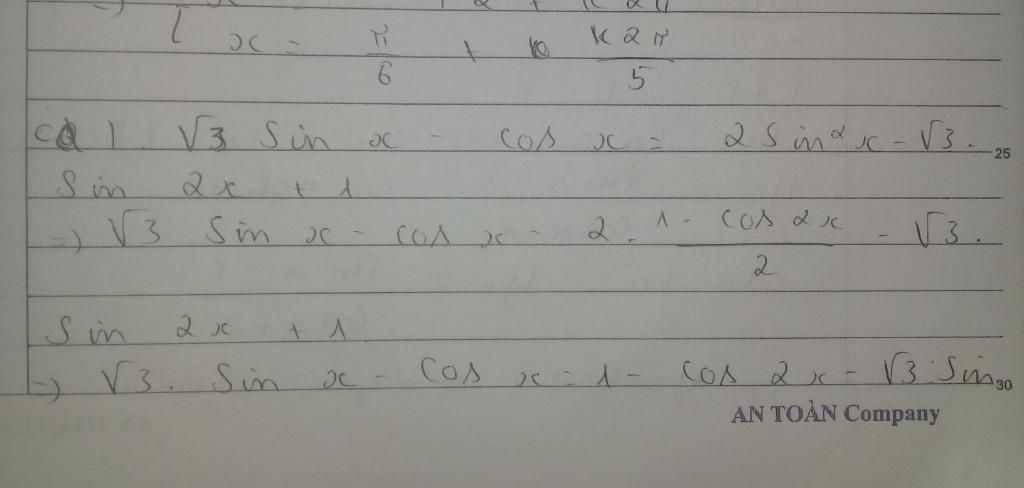 x = π/6 + k2π/5
c) 1. √3 Sin x - cos x = 2 Sin²x - √3.
25
Sin 2x + 1
=> √3 Sin x - cos x = 2. 1 - cos 2x/2 - √3.
Sin 2x + 1
=> √3. Sin x - cos x = 1 - cos 2x - √3. Sin
30
AN TOÀN Company